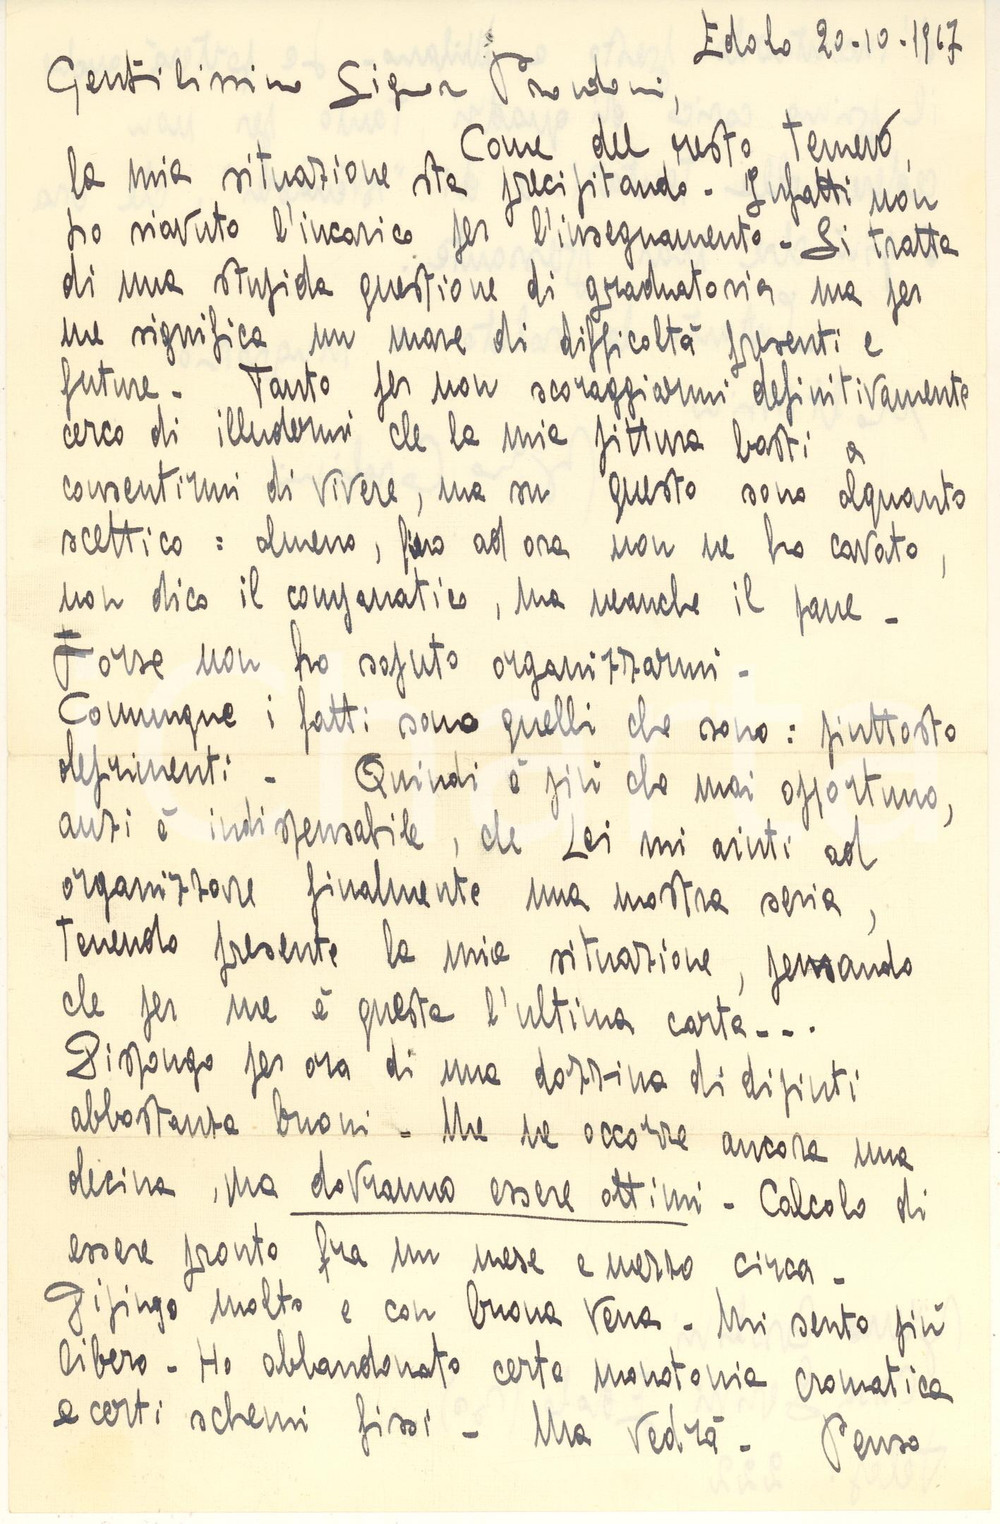 Edolo 20-10-1967
Gentilissimo Signor Prandoni,
Come del resto temevo,
la mia situazione sta precipitando - Infatti non
ho riavuto l'incarico per l'insegnamento - Si tratta
di una stupida questione di graduatoria ma per
me significa un mare di difficoltà presenti e
future - Tanto per non scoraggiarmi definitivamente
cerco di illudermi che la mia pittura basti a
consentirmi di vivere, ma su questo sono alquanto
scettico : almeno, fino ad ora non ne ho cavato,
non dico il companatico, ma neanche il pane -
Forse non ho saputo organizzarmi -
Comunque i fatti sono quelli che sono : piuttosto
deprimenti - Quindi è più che mai opportuno,
anzi è indispensabile, che Lei mi aiuti ad
organizzare finalmente una mostra seria,
tenendo presente la mia situazione, pensando
che per me è questa l'ultima carta - - .
Dispongo per ora di una dozzina di dipinti
abbastanza buoni - Me ne occorre ancora una
decina, ma dovranno essere ottimi - Calcolo di
essere pronto fra un mese e mezzo circa -
Dipingo molto e con buona vena - Mi sento più
libero - Ho abbandonato certa monotonia cromatica
e certi schemi fissi - Ma vedrà - Penso